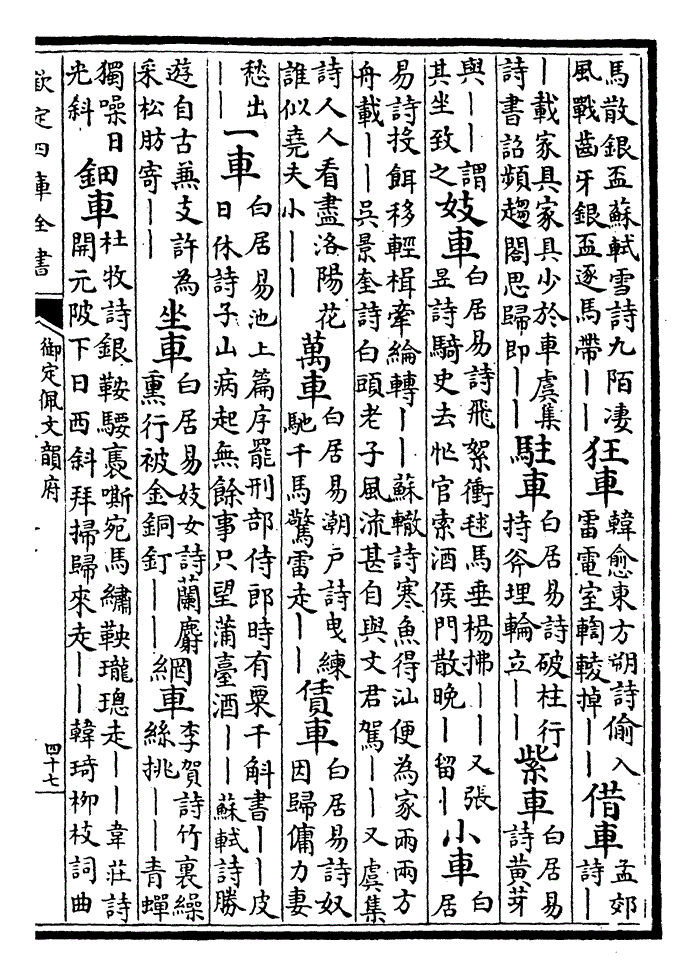 馬散銀盃蘇軾雪詩九陌凄
風戰齒牙銀盃逐馬帶丨丨
狂車
韓愈東方朔詩偷入
雷電室輷輘掉丨丨
借車
孟郊
詩丨
丨載家具家具少於車虞集
詩書詔頻趨閣思歸即丨丨
駐車
白居易詩破柱行
持斧埋輪立丨丨
紫車
白居易
詩黄芽
與丨丨謂
其坐致之
妓車
白居易詩飛絮衝毬馬垂楊拂丨丨又張
昱詩騎史去忙官索酒侯門散晚丨留丨
小車
白
居
易詩投餌移輕楫牽綸轉丨丨蘇轍詩寒魚得汕便為家兩兩方
舟載丨丨吳景奎詩白頭老子風流甚自與文君駕丨丨又虞集
詩人人看盡洛陽花
誰似堯夫小丨丨
萬車
白居易潮户詩曳練
馳千馬驚雷走丨丨
賃車
白居易詩奴
因歸傭力妻
愁出
丨丨
一車
白居易池上篇序罷刑部侍郎時有粟千斛書丨丨皮
日休詩子山病起無餘事只望蒲臺酒丨丨蘇軾詩勝
遊自古兼支許為
采松肪寄丨丨
坐車
白居易妓女詩蘭麝
熏行被金銅釘丨丨
網車
李賀詩竹裏繰
絲挑丨丨青蟬
獨噪日
光斜
鈿車
杜牧詩銀鞍騕褭嘶宛馬繡鞅瓏璁走丨丨韋莊詩
開元陂下日西斜拜掃歸來走丨丨韓琦柳枝詞曲
欽定四庫全書
御定佩文韻府
四十七